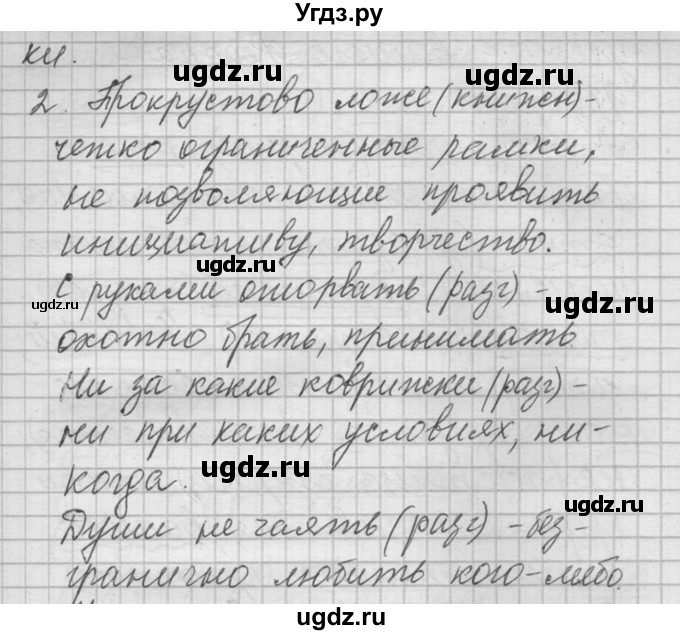 Угдз.ру
ки.
ugdz.ru ugdz.ru
2. Прокрустово ложе (книжн) -
четко ограниченные рамки,
ugdz.ru
не позволяющие проявить
инициативу, творчество.
ugdz.ru
С руками оторвать (разг) -
ugdz.ru ugdz.ru
охотно брать, принимать
Ни за какие коврижки (разг) -
ни при каких условиях, ни-
ugdz.ru
когда.
ugdz.ru
Души не чаять (разг) - без-
гранично любить кого-либо.
ugdz.ru